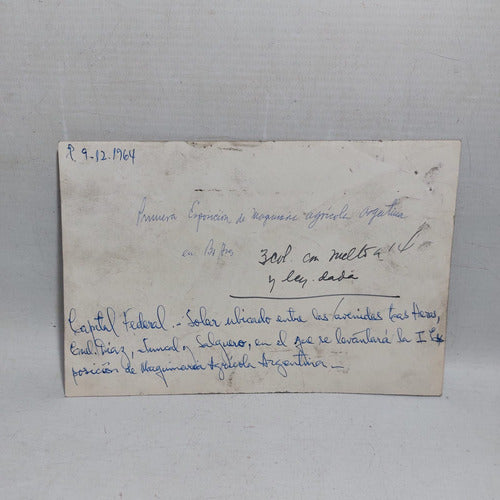 P 9-12-1964
Primera Exposición de Maquinaria agrícola Argentina
en Bs Aires
3 col. con
y ley. dada
Capital Federal.- Solar ubicado entre las avenidas Las Heras,
Cnel. Díaz, Juncal y Salguero, en el que se levantará la I Ex
posición de Maquinaria Agrícola Argentina.-